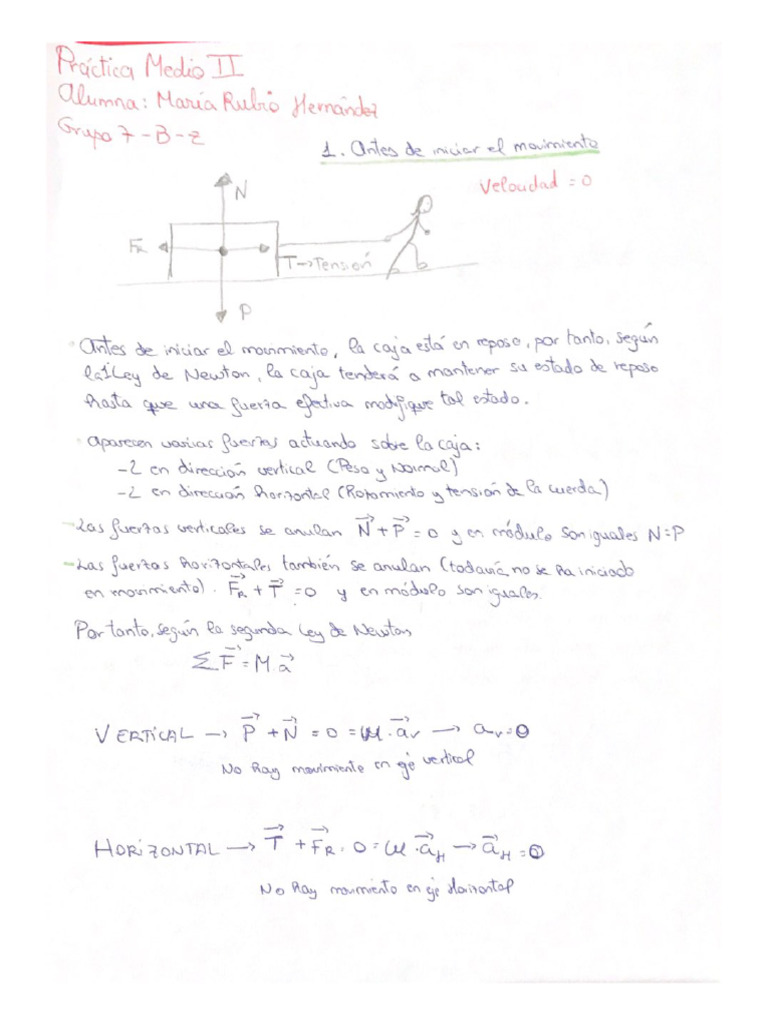 Práctica Medio II
Alumna: María Rubio Hernández
Grupo 7-B-2
1. Antes de iniciar el movimiento
Velocidad = 0
N
FR
T→Tensión
P
Antes de iniciar el movimiento, la caja está en reposo, por tanto, según
la 1ª Ley de Newton, la caja tenderá a mantener su estado de reposo
hasta que una fuerza efectiva modifique tal estado.
Aparecen varias fuerzas actuando sobre la caja:
-2 en dirección vertical (Peso y Normal)
-2 en dirección horizontal (Rozamiento y tensión de la cuerda)
-Las fuerzas verticales se anulan N⃗ + P⃗ = 0 y en módulo son iguales N=P
-Las fuerzas horizontales también se anulan (todavía no se ha iniciado
en movimiento). F⃗R + T⃗ = 0 y en módulo son iguales.
Por tanto, según la segunda Ley de Newton
ΣF⃗ = M.a⃗
VERTICAL → P⃗ + N⃗ = 0 = M.a⃗v → av = 0
No hay movimiento en eje vertical
HORIZONTAL → T⃗ + F⃗R . 0 = M.a⃗H → a⃗H = 0
No hay movimiento en eje Horizontal